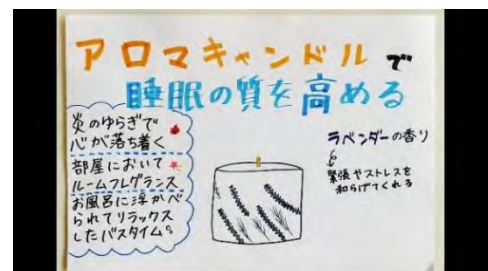 アロマキャンドルで
睡眠の質を高める
炎のゆらぎで
心が落ち着く
部屋において
ルームフレグランス
お風呂に浮かべ
られてリラックス
したバスタイム。
ラベンダーの香り
緊張やストレスを
和らげてくれる